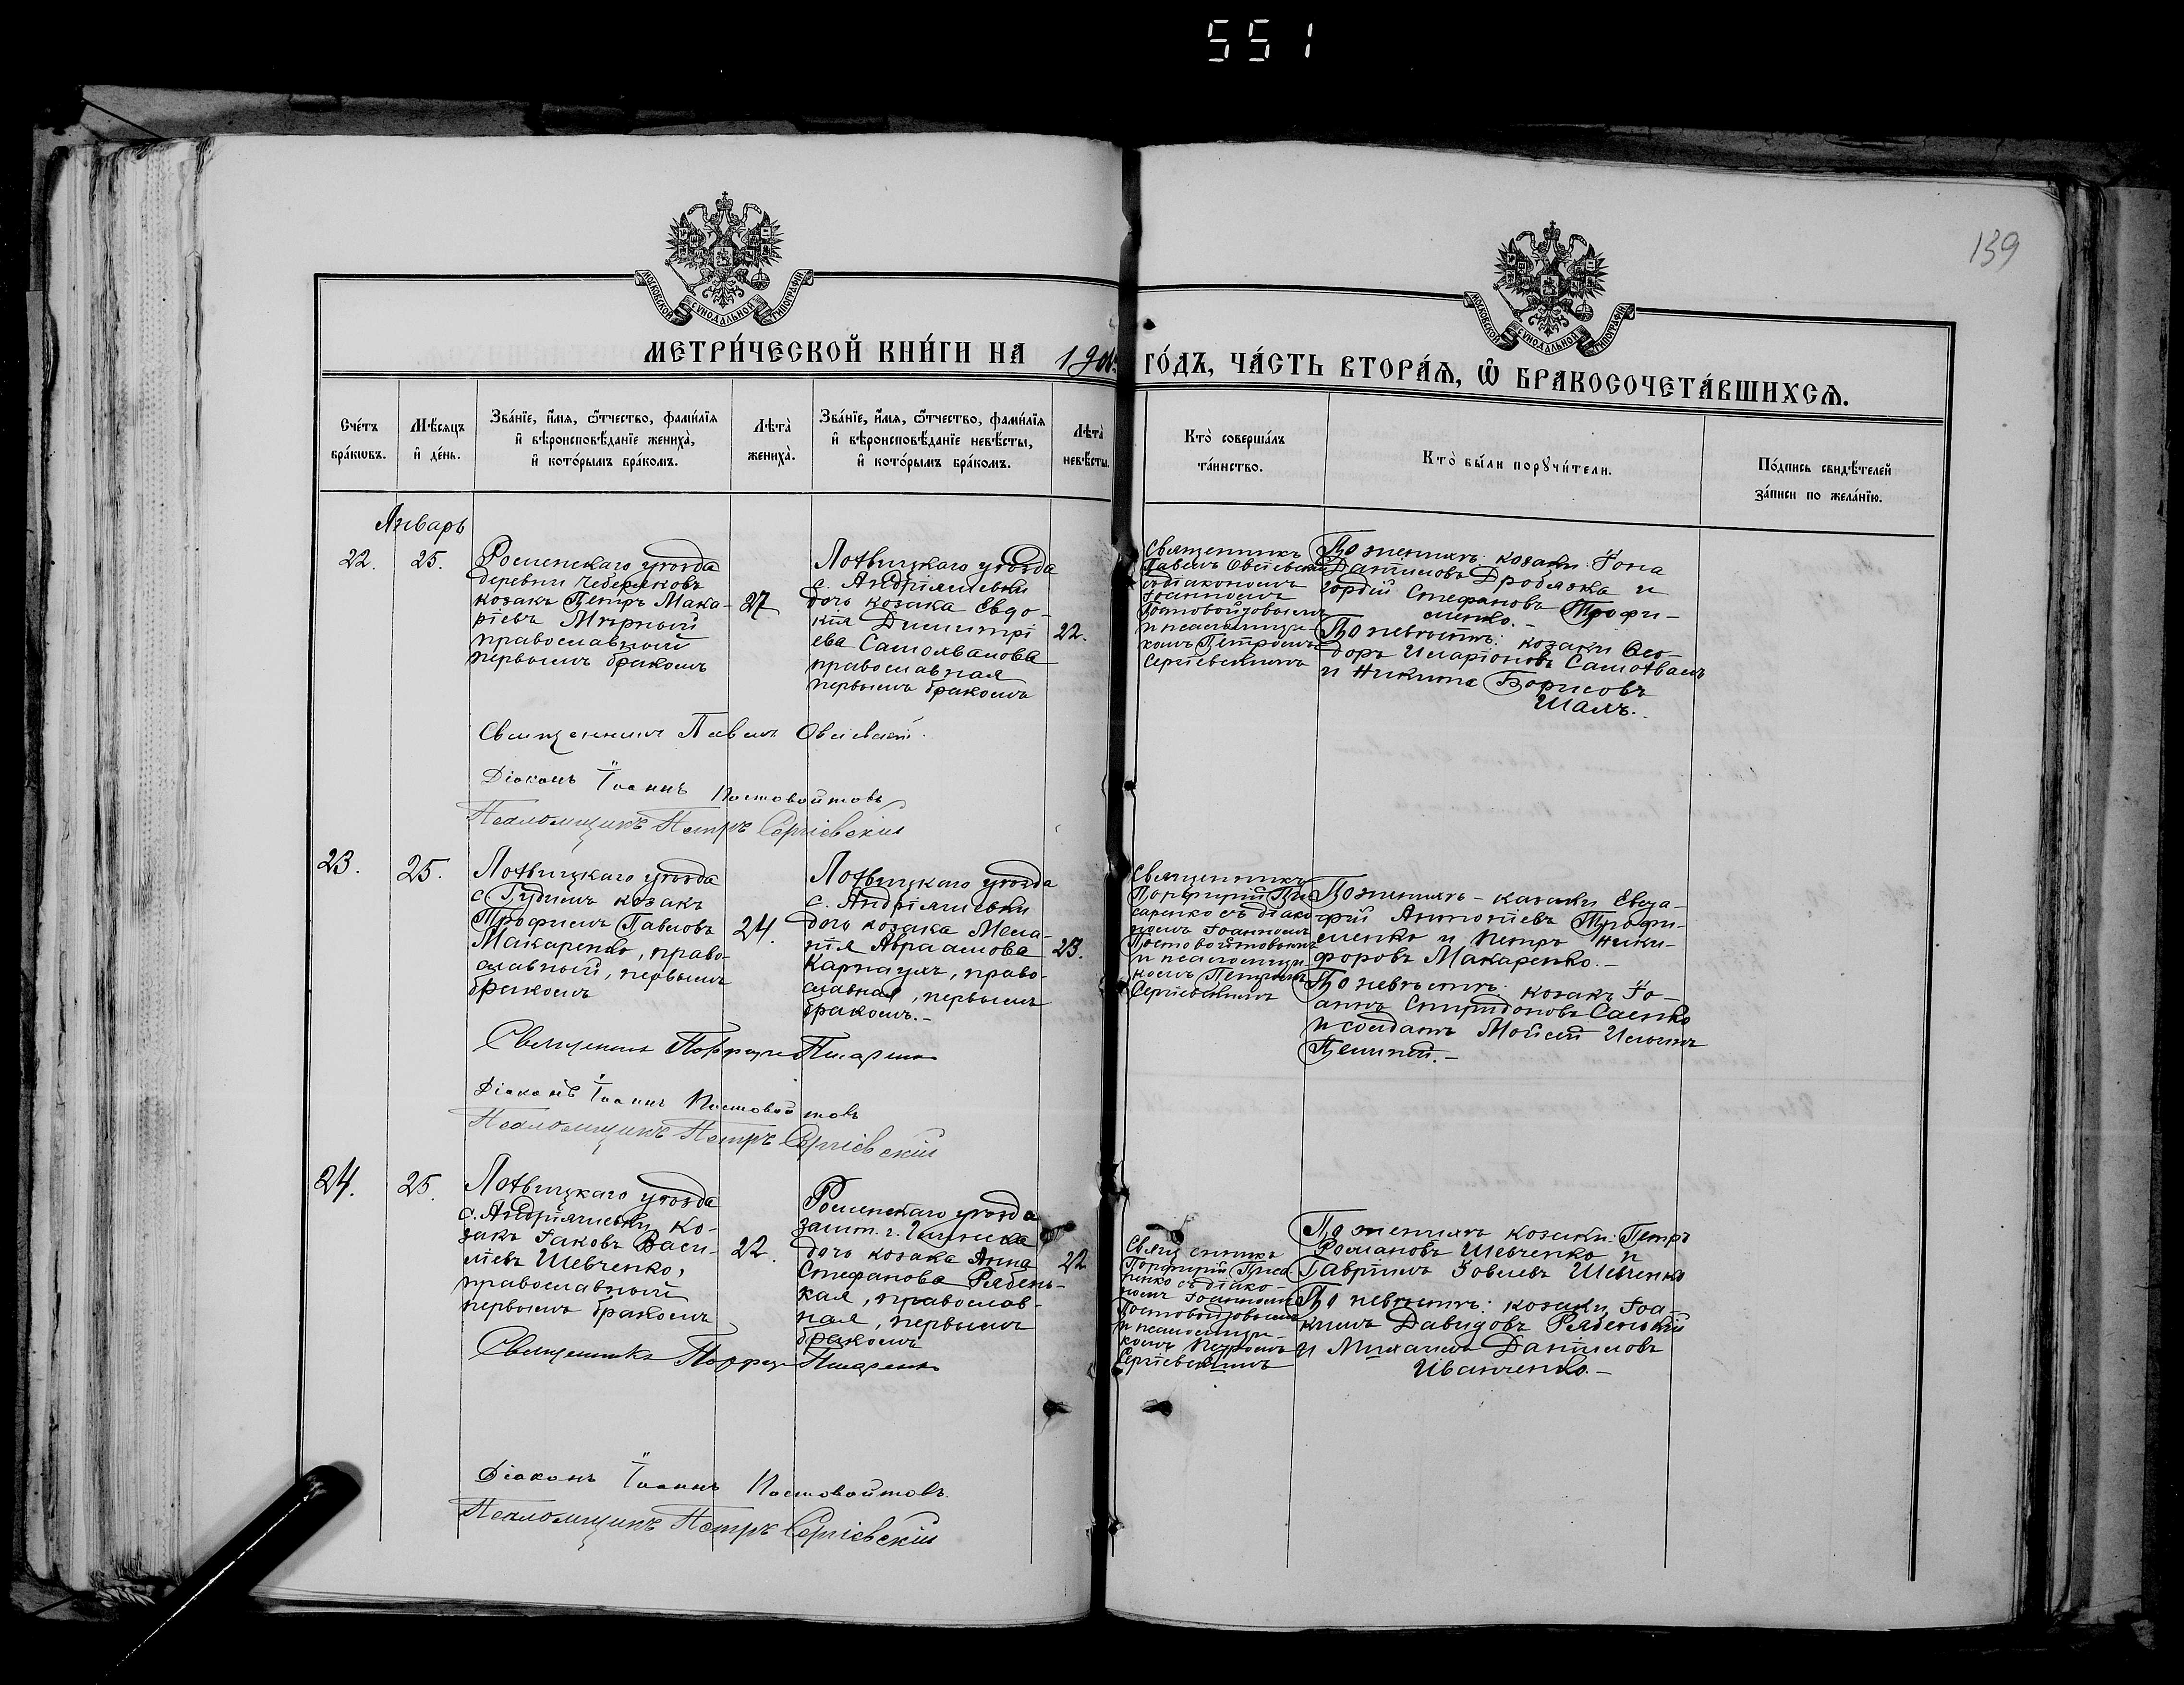 551
139
МОСКОВСКОЙ СѴНОДАЛЬНОЙ ТИПОГРАФІИ
МОСКОВСКОЙ СѴНОДАЛЬНОЙ ТИПОГРАФІИ
МЕТРИ́ЧЕСКОЙ КНИ́ГИ НА 190 ГО́ДЪ, ЧА́СТЬ ВТОРА́Ѧ, Ѽ БРАКОСОЧЕТА́ВШИХСѦ.
Сче́тъ
бра́кѡвъ.
Мѣ́сяцъ
и҆ де́нь.
Зва́нїе, и҆́мѧ, ѻ҆́тчество, фами́лїѧ
и҆ вѣроисповѣ́данїе жениха̀,
и҆ кото́рымъ бра́комъ.
Лѣ́та
жениха̀.
Зва́нїе, и҆́мѧ, ѻ҆́тчество, фами́лїѧ
и҆ вѣроисповѣ́данїе невѣ́сты,
и҆ кото́рымъ бра́комъ.
Лѣ́та
невѣ́сты.
Кто̀ соверша́лъ
та́инство.
Кто̀ бы́ли порꙋчи́тели.
По́дпись свидѣ́телей
за́писи по жела́нїю.
Январь
22.
25.
Роменскаго уѣзда
деревни Чеберяковъ
козакъ Петръ Мака-
ріевъ Мѣрный
православный
первымъ бракомъ
27
Лохвицкаго уѣзда
с. Андріяшевки
дочь козака Евдо-
кія Димитрі
ева Самохвалова
православная
первымъ бракомъ
22.
Священникъ
Павелъ Овсіевскій
съ діакономъ
Іоанномъ
Постовойтовымъ
и псаломщи-
комъ Петромъ
Сергіевскимъ
По женихѣ: козаки: Іона
Даніиловъ Дробязка и
Гордій Стефановъ Трофи-
менко.-
По невѣстѣ: козаки Ѳео-
доръ Иларіоновъ Самохвалъ
и Никита Борисовъ
Шамъ.
Священникъ Павелъ Овсіевскій.
Діаконъ Іоаннъ Постовойтовъ
Псаломщикъ Петръ Сергіевскій
23.
25.
Лохвицкаго уѣзда
с. Гудимъ козакъ
Трофимъ Павловъ
Макаренко, право-
славный, первымъ
бракомъ
24.
Лохвицкаго уѣзда
с. Андріяшевки
дочь козака Мела-
нія Авраамова
Карнаухъ, право-
славная, первымъ
бракомъ.-
23.
Священникъ
Порфирій Пи
саренко съ діако
номъ Іоанномъ
Постовойтовымъ
и псаломщи-
комъ Петромъ
Сергіевскимъ
По женихѣ - козаки Евста-
фій Антоніевъ Трофи-
менко и Петръ Ники-
форовъ Макаренко.-
По невѣстѣ: козакъ Іо-
аннъ Спиридоновъ Саенко
и солдатъ Мойсей Ильинъ
Священникъ Порфирій Писаренко
Діаконъ Іоаннъ Постовойтовъ
Псаломщикъ Петръ Сергіевскій
24.
25.
Лохвицкаго уѣзда
с. Андріяшевки, ко-
закъ Іаковъ Васи-
ліевъ Шевченко,
православный
первымъ бракомъ
22.
Роменскаго уѣзда
зашт. г. Глинска
дочь козака Анна
Стефанова Рябень-
кая, православ-
ная, первымъ
бракомъ
22
Священникъ
Порфирій Писа
ренко съ діако-
номъ Іоанномъ
Постовойтовымъ
и псаломщи-
комъ Петромъ
Сергіевскимъ
По женихѣ козаки: Петръ
Романовъ Шевченко и
Гавріилъ Іовлевъ Шевченко
По невѣстѣ: козаки, Іоа-
кимъ Давидовъ Рябенькій
и Михаилъ Даніиловъ
Иванченко.-
Священникъ Порфирій Писаренко
Діаконъ Іоаннъ Постовойтовъ.
Псаломщикъ Петръ Сергіевскій